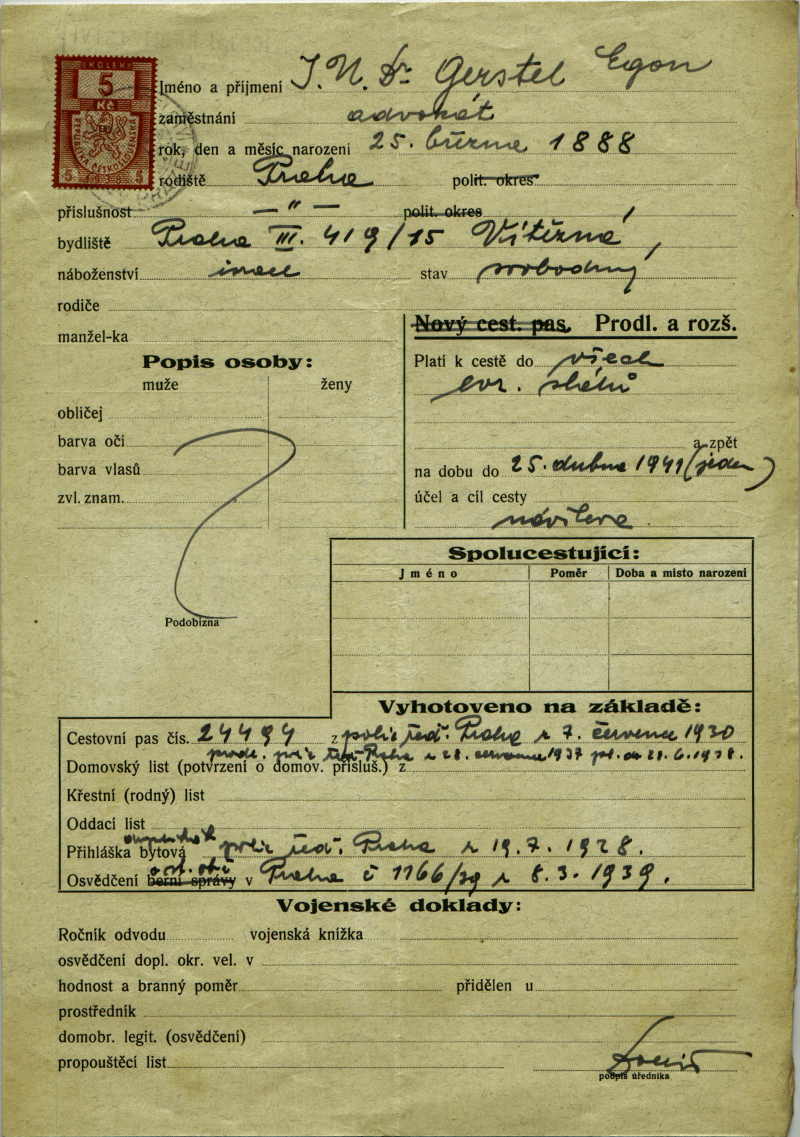 KOLEK
5
Kč
REPUBLIKA ČESKOSLOVENSKÁ
5 5
Jméno a příjmení J.U.Dr Gerstel Egon
zaměstnání advokát
rok, den a měsíc narození 25. března 1888
rodiště Praha polit. okres
příslušnost — " — polit. okres
bydliště Praha III. 419/15 Vítězná
náboženství israel stav svobodný
rodiče
manžel-ka
Nový cest. pas. Prodl. a rozš.
Popis osoby:
muže ženy
obličej
barva očí
barva vlasů
zvl. znam.
Podobizna
Platí k cestě do všech
evr. států
a zpět
na dobu do 25. dubna 1941 (jeden)
účel a cíl cesty
návštěva
Spolucestující:
Jméno Poměr Doba a místo narození
Vyhotoveno na základě:
Cestovní pas čís. 24494 z polic. řed. Praha z 7. července 1930
prodl. pol. řed. Praha z 28. července 1937 pl. do 28.6.1938.
Domovský list (potvrzení o domov. přísluš.) z
Křestní (rodný) list
Oddací list
Přihláška bytová polic řed. Praha z 19.7.1928.
Osvědčení berní správy v Praha č 1166/39 z 8.3.1939.
Vojenské doklady:
Ročník odvodu vojenská knížka
osvědčení dopl. okr. vel. v
hodnost a branný poměr přidělen u
prostředník
domobr. legit. (osvědčení)
propouštěcí list
podpis úředníka